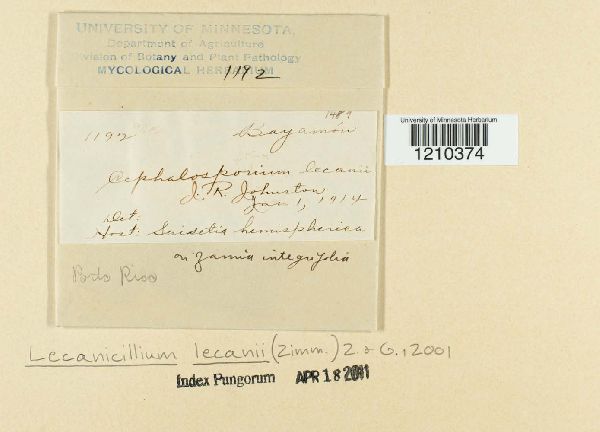 UNIVERSITY OF MINNESOTA,
Department of Agriculture
Division of Botany and Plant Pathology
MYCOLOGICAL HERBARIUM
1192
1489
1192 Bayamón
Cephalosporium lecanii
J. R. Johnston
Jan 1, 1914
Det:
Host: Saisetia hemispherica
on Zamia integrifolia
Porto Rico
University of Minnesota Herbarium
1210374
Lecanicillium lecanii (Zimm.) Z. & G., 2001
Index Fungorum APR 18 2011